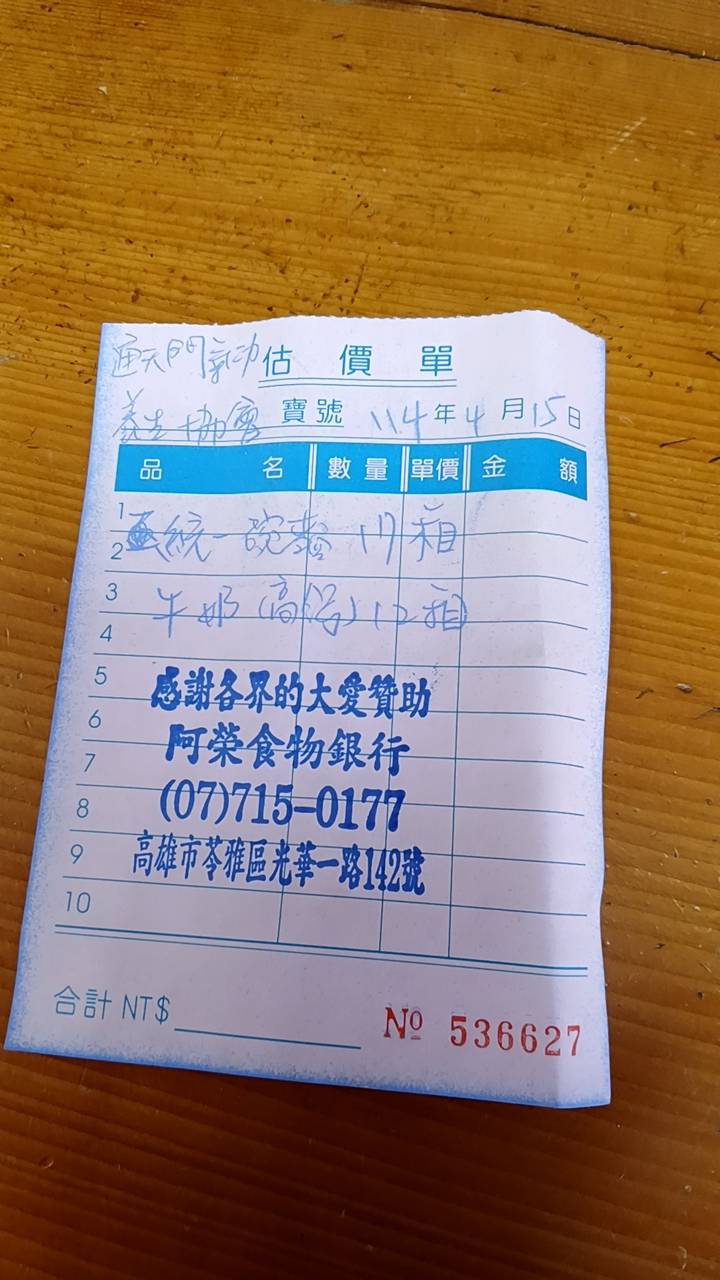 通天門氣功 估價單
養生協會 寶號 114年4月15日
品名 數量 單價 金額
1
2 統一碗麵 17箱
3 牛奶(高鈣)12箱
4
5 感謝各界的大愛贊助
6 阿榮食物銀行
7
8 (07)715-0177
9 高雄市苓雅區光華一路142號
10
合計 NT$ Nº 536627